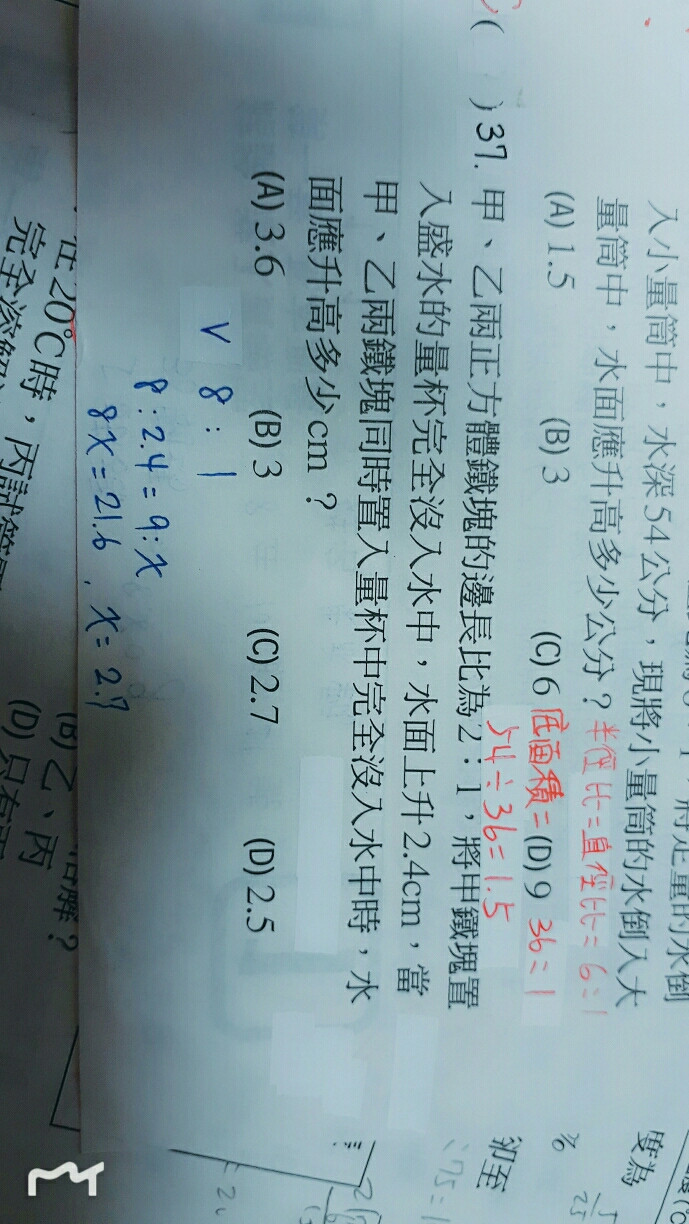 入小量筒中,水深54公分,現將小量筒的水倒入大
量筒中,水面應升高多少公分?半徑比=直徑比=6:1
(A) 1.5 (B) 3 (C) 6 底面積= (D) 9 36=1
54÷36=1.5
( ) 37. 甲、乙兩正方體鐵塊的邊長比為2:1,將甲鐵塊置
入盛水的量杯完全沒入水中,水面上升2.4cm,當
甲、乙兩鐵塊同時置入量杯中完全沒入水中時,水
面應升高多少cm?
(A) 3.6 (B) 3 (C) 2.7 (D) 2.5
V 8:1
8:2.4=9:x
8x=21.6, x=2.7
在20°C時,丙試管
完全溶解
(B) 乙、丙
(D) 只有丙
溶解?
度為
卻至